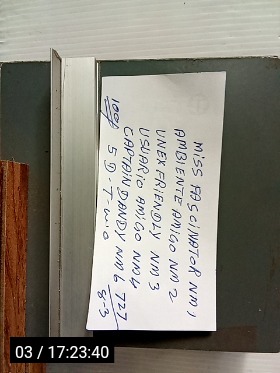 MISS FASCINATOR NM 1
AMBIENTE AMIGO NM 2
UNEK FRIENDLY NM 3
USUARIO AMIGO NM 4
CAPTAIN DANDY NM 6 727
100 5 D. Two 8-3
03 / 17:23:40